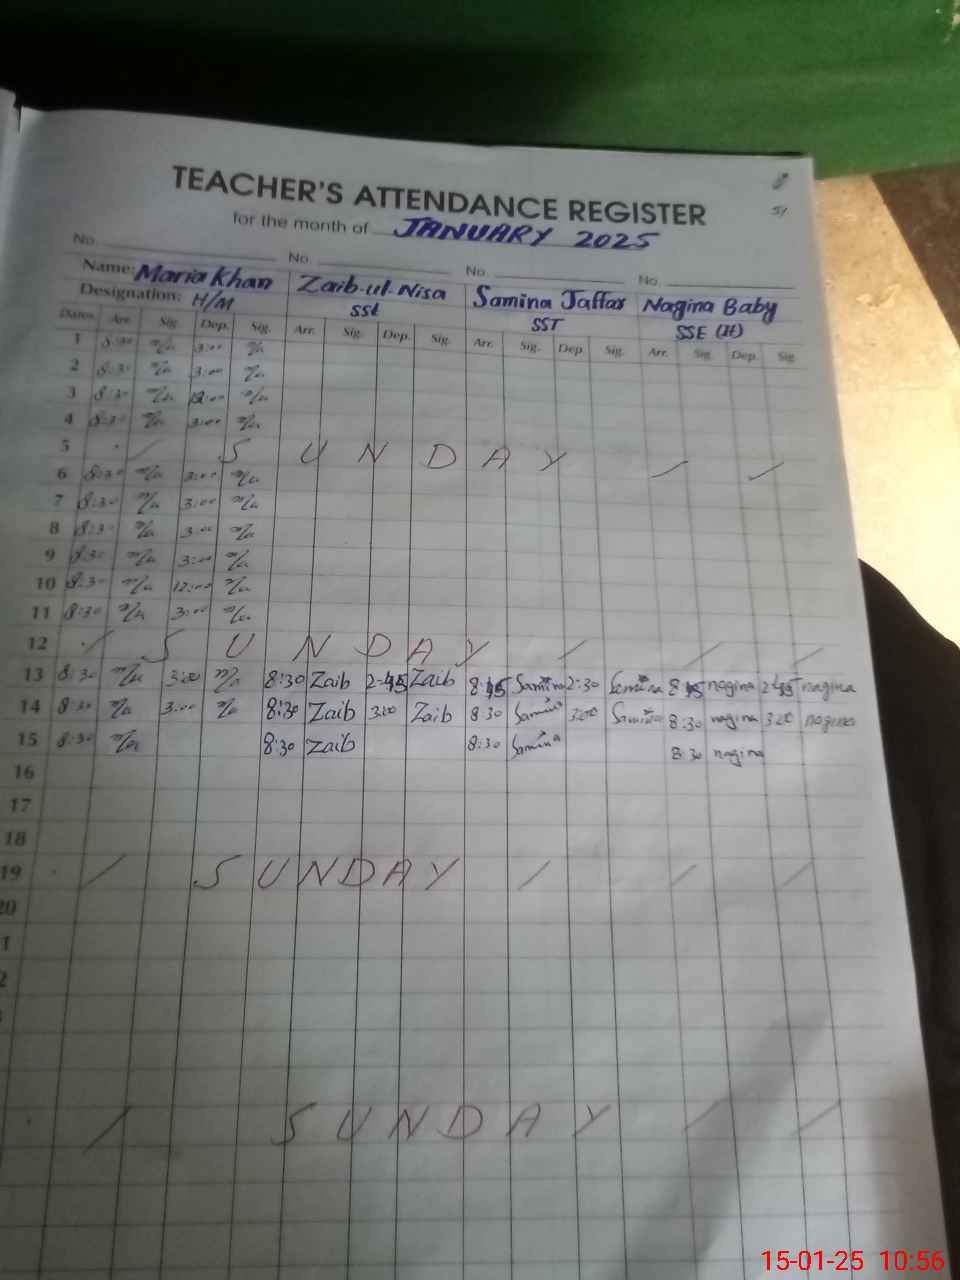 51
TEACHER'S ATTENDANCE REGISTER
for the month of JANUARY 2025
No. No. No. No.
Name: Maria Khan Zaib-ul-Nisa Samina Jaffar Nagina Baby
Designation: H/M SSE SST SSE (H)
Dates Arr. Sig. Dep. Sig. Arr. Sig. Dep. Sig. Arr. Sig. Dep. Sig. Arr. Sig. Dep. Sig.
1 8:30 3:00
2 8:30 3:00
3 8:30 12:00
4 8:30 3:00
5 SUNDAY
6 8:30 3:00
7 8:30 3:00
8 8:30 3:00
9 8:30 3:00
10 8:30 12:00
11 8:30 3:00
12 SUNDAY
13 8:30 3:00 8:30 Zaib 2-45 Zaib 8:45 Samina 2-30 Samina 8:45 nagina 2:45 nagina
14 8:30 3:00 8:30 Zaib 3:00 Zaib 8:30 Samina 3:00 Samina 8:30 nagina 3:00 nagina
15 8:30 8:30 Zaib 8:30 Samina 8:30 nagina
16
17
18
19 SUNDAY
20
SUNDAY
15-01-25 10:56